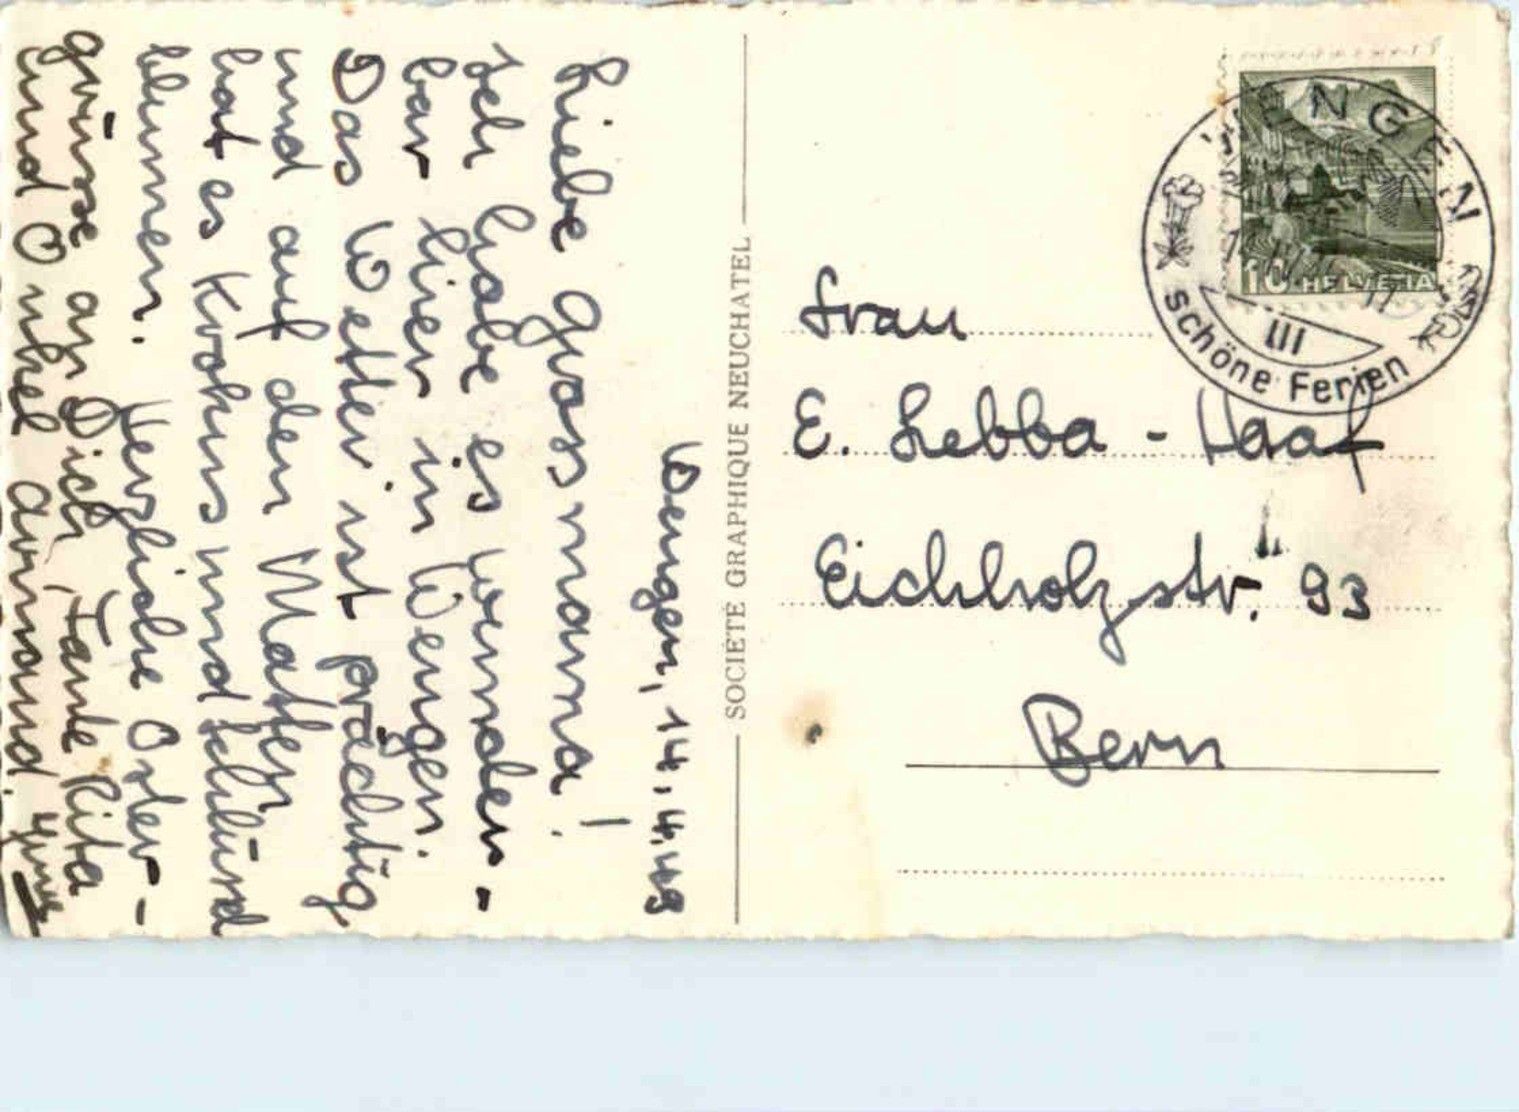 Wengen, 14.4.49
Liebe Grossmama!
Ich habe es wunder-
bar hier in Wengen.
Das Wetter ist prächtig
und auf den Matten
hat es Krokus und Schlüssel
blumen. Herzliche Oster-
grüsse an Dich, Tante Rita
und Onkel Armand.
SOCIÉTÉ GRAPHIQUE NEUCHATEL
WENGEN
III
schöne Ferien
10 HELVETIA
Frau
E. Lebba - Haaf
Eichholzstr. 93
Bern